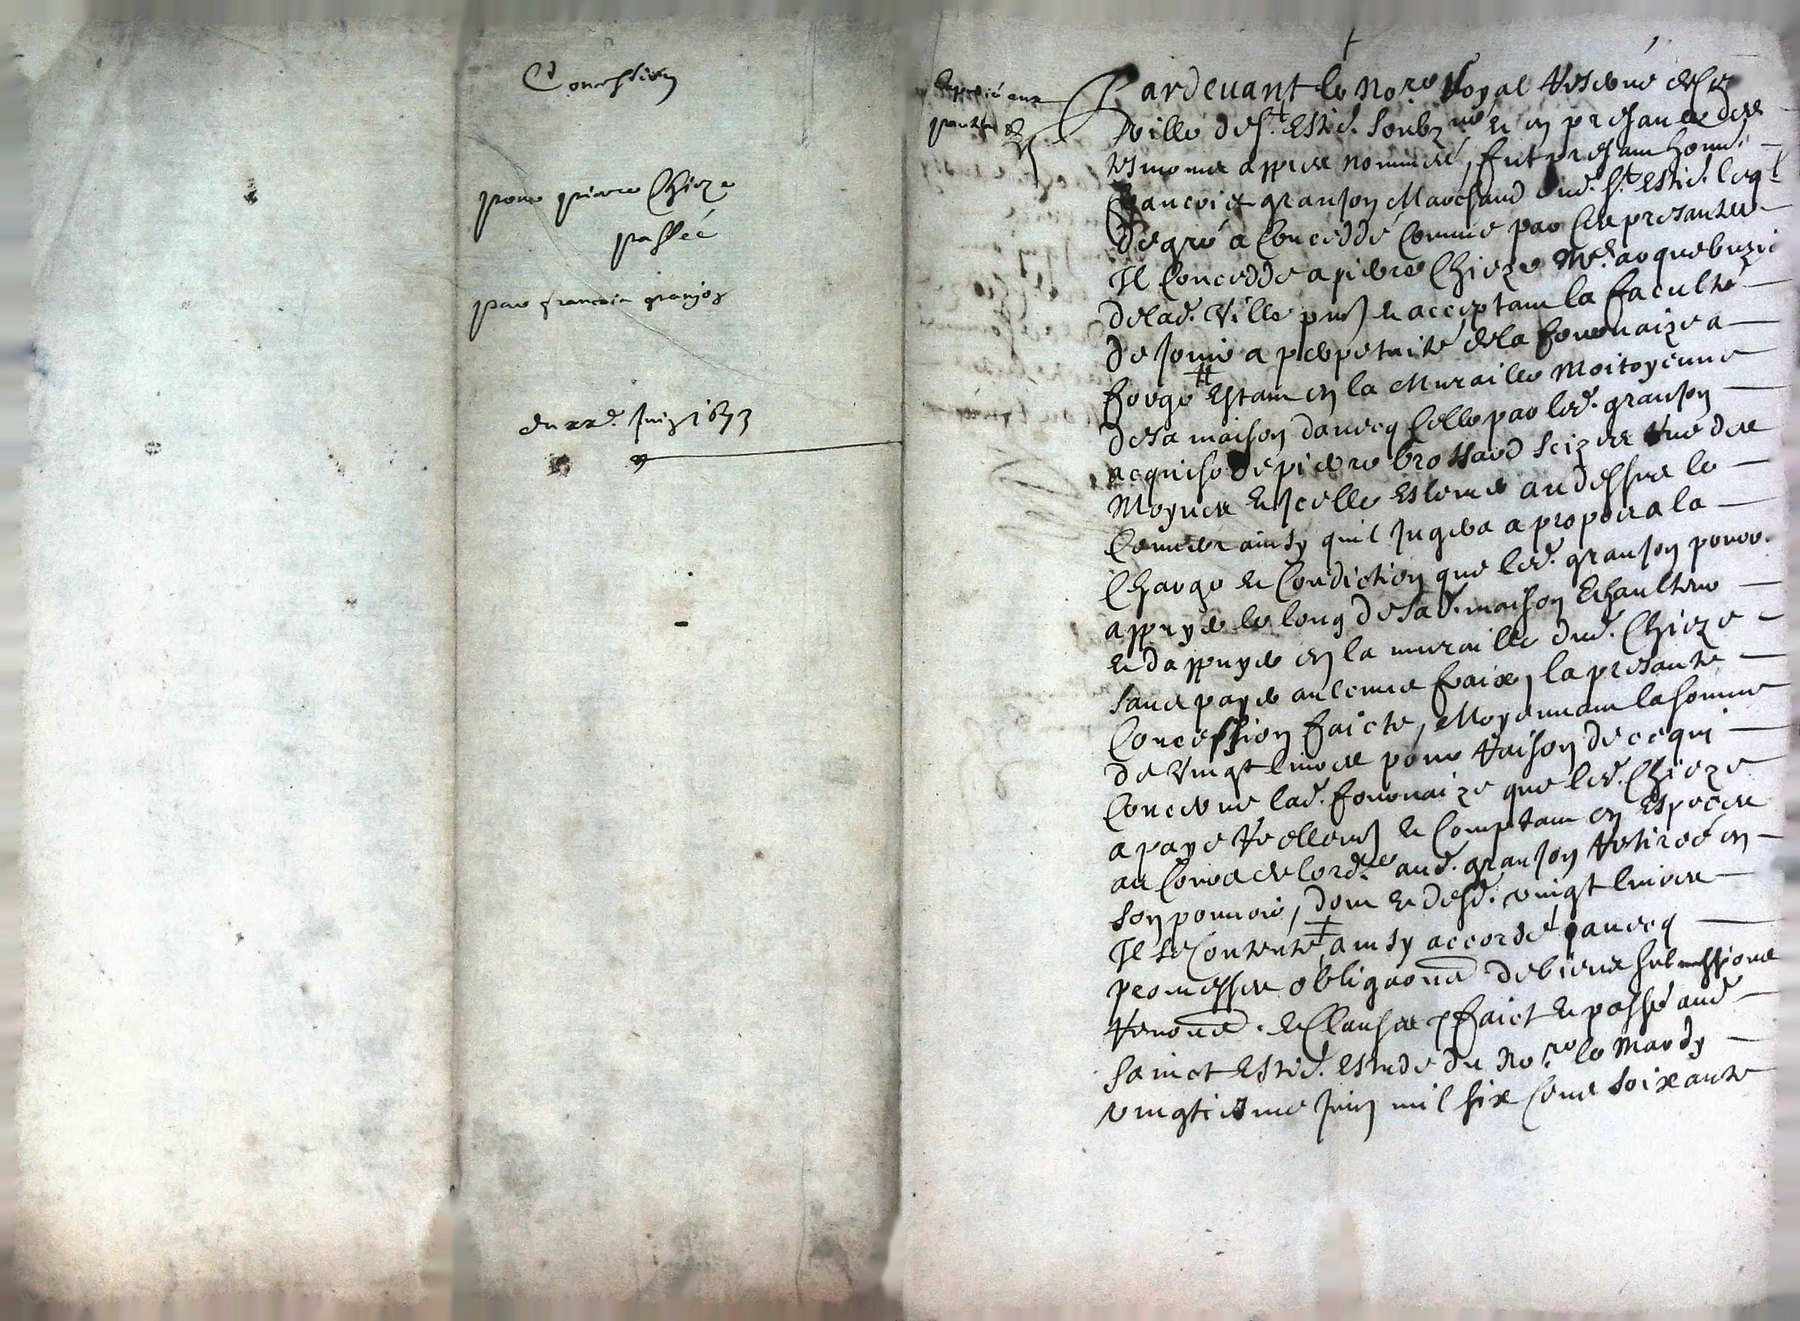 Concession
pour pierre Chieze
passée
par francois granjon
du xxe. Juin 1673
Expedié aux
parties
Pardevant le Nore Royal Reservé de la
Ville de St. Estie. soubzné & en presance des
tesmoins appres nommés, fut presant honn.
francois granjon Marchand dud. St. Estie. leql
de gré a conceddé comme par ces presantes
Il Conceddé a pierre Chieze Me. arquebuzie
de lad. Ville pnt & acceptant la faculté
de jouir a perpetuité de la fournaize a
forge # Estant en la Muraille Moitoyenne
de sa maison davecq celle par led. granjon
acquise de pierre brossard scize rue des
Moynes & Icelle Eslever au dessus le
Couvert ainsy quil jugera a propos a la
Charge & Condiction que led. granjon pourr.
appuyer le long de sa d. maison & haulteur
& dappuyer en la muraille dud. Chieze
sans payer aulcuns fraix, la presante
Concession faicte, Moyennant la somme
de Vingt livres pour raison de ce qui
Concerne lad. fournaize que led. Chieze
a payé reellemt & Comptant en Especes
au Cours de lord.e aud. granjon retirée en
son pouvoir, dont & desd. vingt livres
Il se Contente, ainsy accordé, avecq
promesses obligaons de biens submissions
renons. & Clauses, faict & passé aud.
Sainct Estie. Estude du Nore. le Mardy
vingtiesme Juin mil six Cens soixante